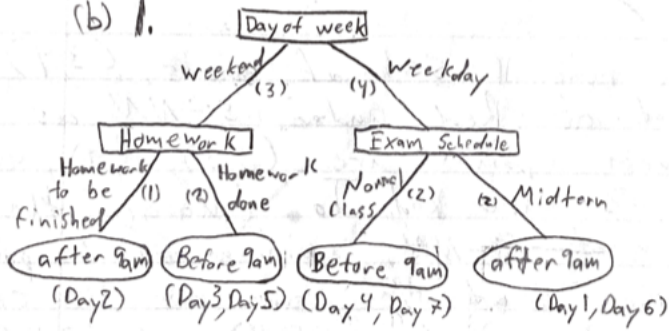 (b) 1.
Day of week
Weekend (3) (4) Weekday
Homework Exam Schedule
Homework to be finished (1) (2) Homework done Normal Class (2) (2) Midterm
after 9am Before 9am Before 9am after 9am
(Day2) (Day3, Day5) (Day 4, Day 7) (Day1, Day 6)